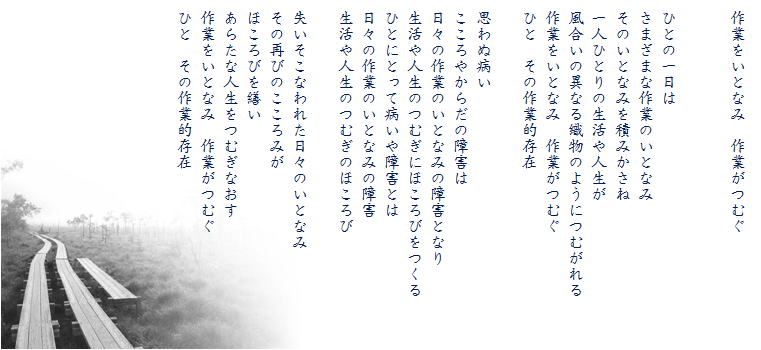 作業をいとなみ　作業がつむぐ
ひとの一日は
さまざまな作業のいとなみ
そのいとなみを積みかさね
一人ひとりの生活や人生が
風合いの異なる織物のようにつむがれる
作業をいとなみ　作業がつむぐ
ひと　その作業的存在
思わぬ病い
こころやからだの障害は
日々の作業のいとなみの障害となり
生活や人生のつむぎにほころびをつくる
ひとにとって病いや障害とは
日々の作業のいとなみの障害
生活や人生のつむぎのほころび
失いそこなわれた日々のいとなみ
その再びのこころみが
ほころびを繕い
あらたな人生をつむぎなおす
作業をいとなみ　作業がつむぐ
ひと　その作業的存在